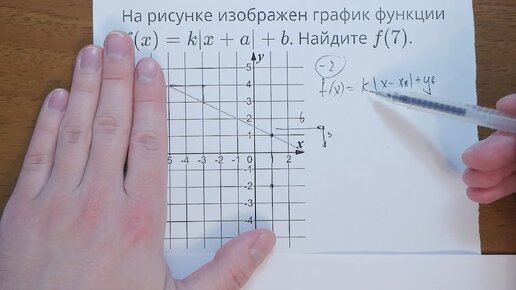 На рисунке изображен график функции
f(x) = k|x + a| + b. Найдите f(7).
y
4
3
2
1
-5 -4 -3 -2 -1 0 1 2 x
-1
-2
-3
-4
-2
f(x) = k|x - xв| + yв
6
3